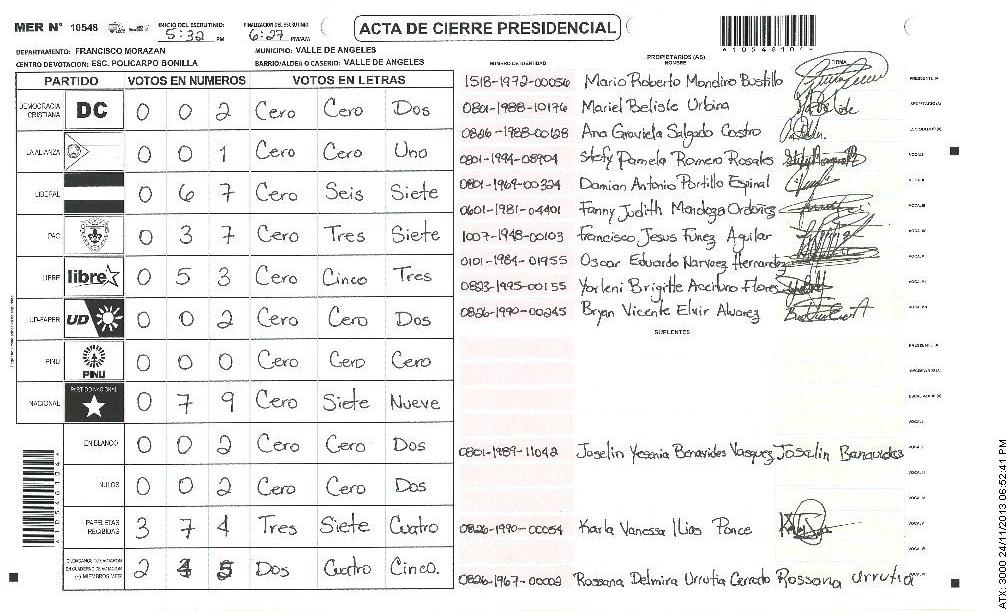 MER N° 10548 INICIO DEL ESCRUTINIO 5:32 PM FINALIZACION DEL ESCRUTINIO 6:27 PM/AM
ACTA DE CIERRE PRESIDENCIAL
A10548101A
DEPARTAMENTO: FRANCISCO MORAZAN MUNICIPIO: VALLE DE ANGELES
CENTRO DE VOTACION: ESC. POLICARPO BONILLA BARRIO/ALDEA O CASERIO: VALLE DE ANGELES
PARTIDO VOTOS EN NUMEROS VOTOS EN LETRAS
DEMOCRACIA CRISTIANA DC 0 0 2 Cero Cero Dos
LA ALIANZA 0 0 1 Cero Cero Uno
LIBERAL 0 6 7 Cero Seis Siete
PAC 0 3 7 Cero Tres Siete
LIBRE libre 0 5 3 Cero Cinco Tres
UD-FAPER UD 0 0 2 Cero Cero Dos
PINU PINU 0 0 0 Cero Cero Cero
NACIONAL PARTIDO NACIONAL 0 7 9 Cero Siete Nueve
EN BLANCO 0 0 2 Cero Cero Dos
NULOS 0 0 2 Cero Cero Dos
PAPELETAS RECIBIDAS 3 7 4 Tres Siete Cuatro
CIUDADANOS QUE VOTARON EN CUADERNO DE VOTACION (+) MIEMBROS MER 2 4 5 Dos Cuatro Cinco.
PROPIETARIOS (AS)
NUMERO DE IDENTIDAD NOMBRE FIRMA
1518-1972-00056 Mario Roberto Mondino Bustillo
0801-1988-10176 Mariel Beliste Urbina
0826-1988-00128 Ana Graviela Salgado Castro
0801-1994-08904 Stefy Pamela Romero Rosales
0801-1969-00324 Damian Antonio Portillo Espinal
0601-1981-04401 Fanny Judith Mendoza Ordoñez
1007-1948-00103 Francisco Jesus Funez Aguilar
0101-1984-01955 Oscar Eduardo Narvaez Hernandez
0823-1995-00155 Yorleni Brigitte Aceituno Flores
0826-1990-00245 Bryan Vicente Elvir Alvarez
SUPLENTES
0801-1989-11042 Joselin Yesenia Benavides Vasquez Josalin Banavides
0826-1990-00054 Karla Vanessa Ilias Ponce
0826-1967-00002 Rossana Delmira Urrutia Cerrato Rossana Urrutia
ATX:3000 24/11/2013 06:52:41 PM